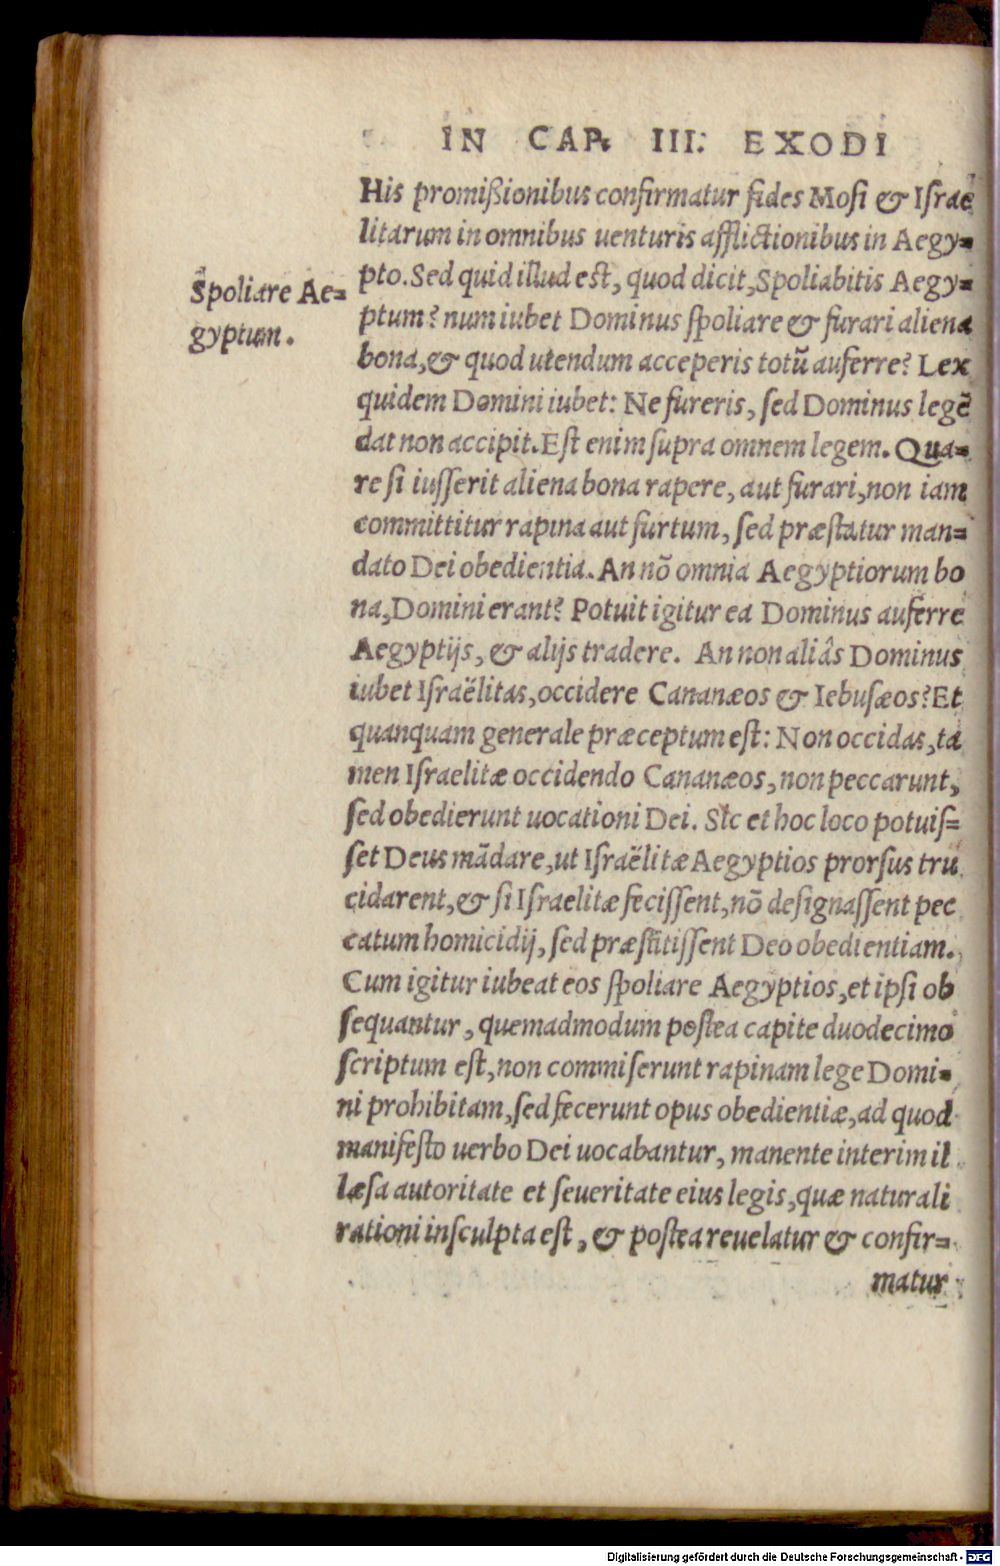 IN CAP. III. EXODI
His promißionibus confirmatur fides Mosi & Israë
litarum in omnibus uenturis afflictionibus in Aegy=
pto. Sed quid illud est, quod dicit, Spoliabitis Aegy=
ptum? num iubet Dominus spoliare & furari aliena
bona, & quod utendum acceperis totũ auferre? Lex
quidem Domini iubet: Ne fureris, sed Dominus legẽ
dat non accipit. Est enim supra omnem legem. Qua=
re si iusserit aliena bona rapere, aut furari, non iam
committitur rapina aut furtum, sed præstatur man=
dato Dei obedientia. An nõ omnia Aegyptiorum bo
na, Domini erant? Potuit igitur ea Dominus auferre
Aegyptijs, & alijs tradere. An non aliâs Dominus
iubet Israëlitas, occidere Cananæos & Iebusæos? Et
quanquam generale præceptum est: Non occidas, ta
men Israelitæ occidendo Cananæos, non peccarunt,
sed obedierunt uocationi Dei. Sic et hoc loco potuis=
set Deus mãdare, ut Israëlitæ Aegyptios prorsus tru
cidarent, & si Israelitæ fecissent, nõ designassent pec
catum homicidij, sed præstitissent Deo obedientiam.
Cum igitur iubeat eos spoliare Aegyptios, et ipsi ob
sequantur, quemadmodum postea capite duodecimo
scriptum est, non commiserunt rapinam lege Domi=
ni prohibitam, sed fecerunt opus obedientiæ, ad quod
manifesto uerbo Dei uocabantur, manente interim il
læsa autoritate et seueritate eius legis, quæ naturali
rationi insculpta est, & postea reuelatur & confir=
matur
Spoliare Ae=
gyptum.
Digitalisierung gefördert durch die Deutsche Forschungsgemeinschaft - DFG